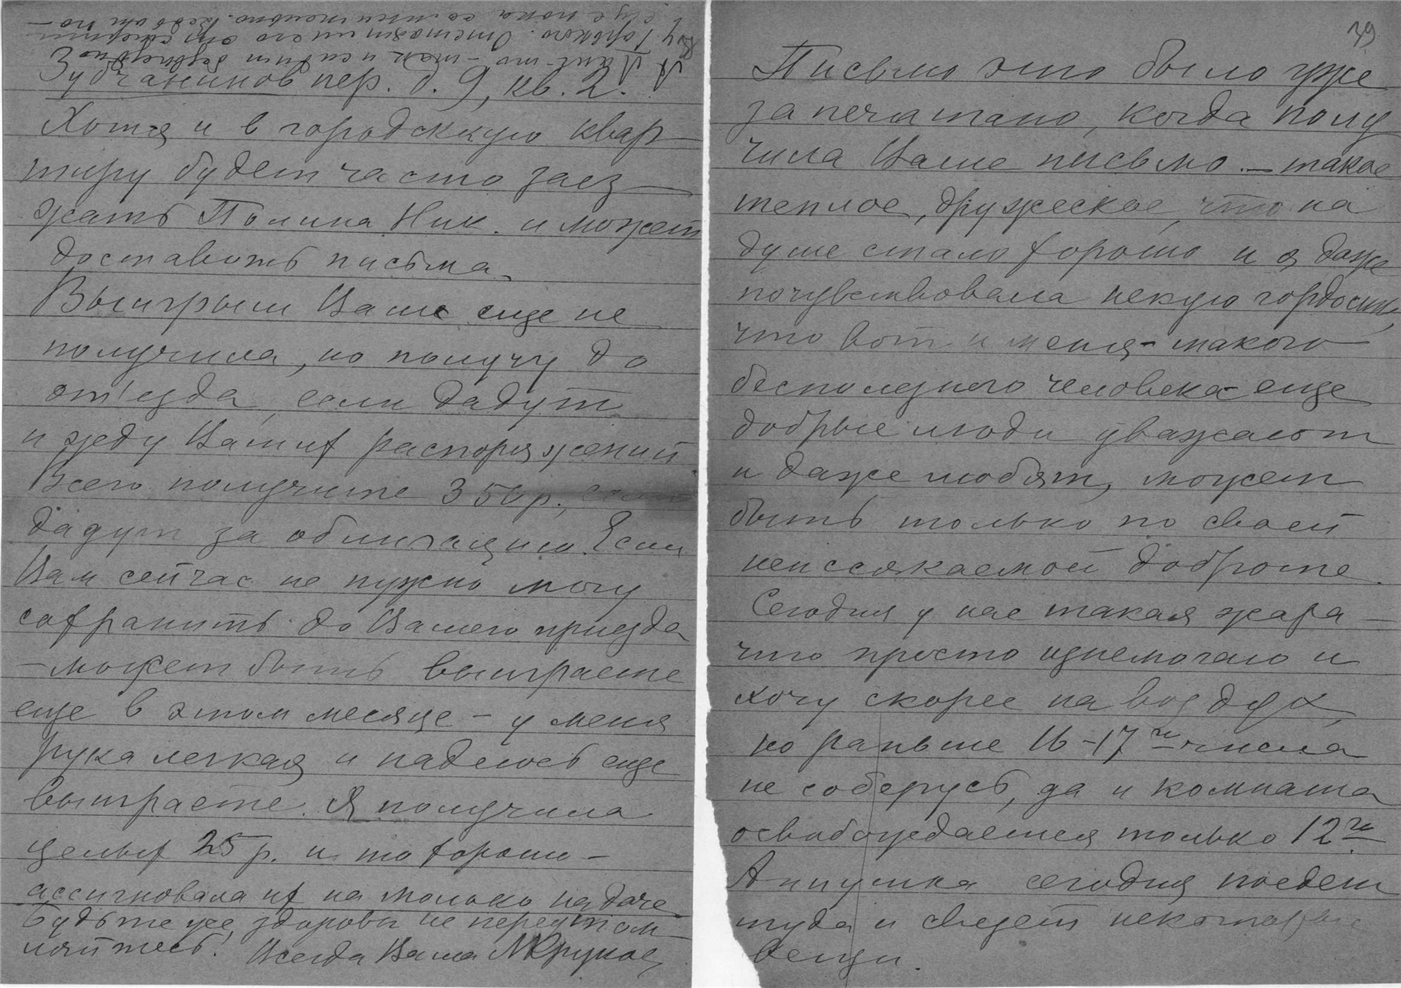 Зубчанинов пер. д. 9, кв. 2.
Хотя и в городскую квар
тиру будет часто заез
жать Полина Ник. и может
доставить письма.
Выигрыш Ваш еще не
получила, но получу до
отъезда, если дадут
и жду Ваших распоряжений
Всего получите 350 р.,
дадут за облигацию. Если
Вам сейчас не нужно могу
сохранить до Вашего приезда
— может быть выиграете
еще в этом месяце — у меня
рука легкая и надеюсь еще
выиграете. Я получила
целых 25 р. и то хорошо —
ассигновала их на молоко на даче
Будьте же здоровы не переутом
ляйтесь. Всегда Ваша
39
Письмо это было уже
запечатано, когда полу
чила Ваше письмо — такое
теплое, дружеское, что на
душе стало хорошо и я даже
почувствовала некую гордость,
что вот и меня — такого
бесполезного человека — еще
добрые люди уважают
и даже любят, может
быть только по своей
неиссякаемой доброте.
Сегодня у нас такая жара —
что просто изнемогаю и
хочу скорее на воздух,
но раньше 16–17 го числа
не соберусь, да и комната
освобождается только 12 го
Аннушка сегодня поедет
туда и свезет некоторые
вещи.